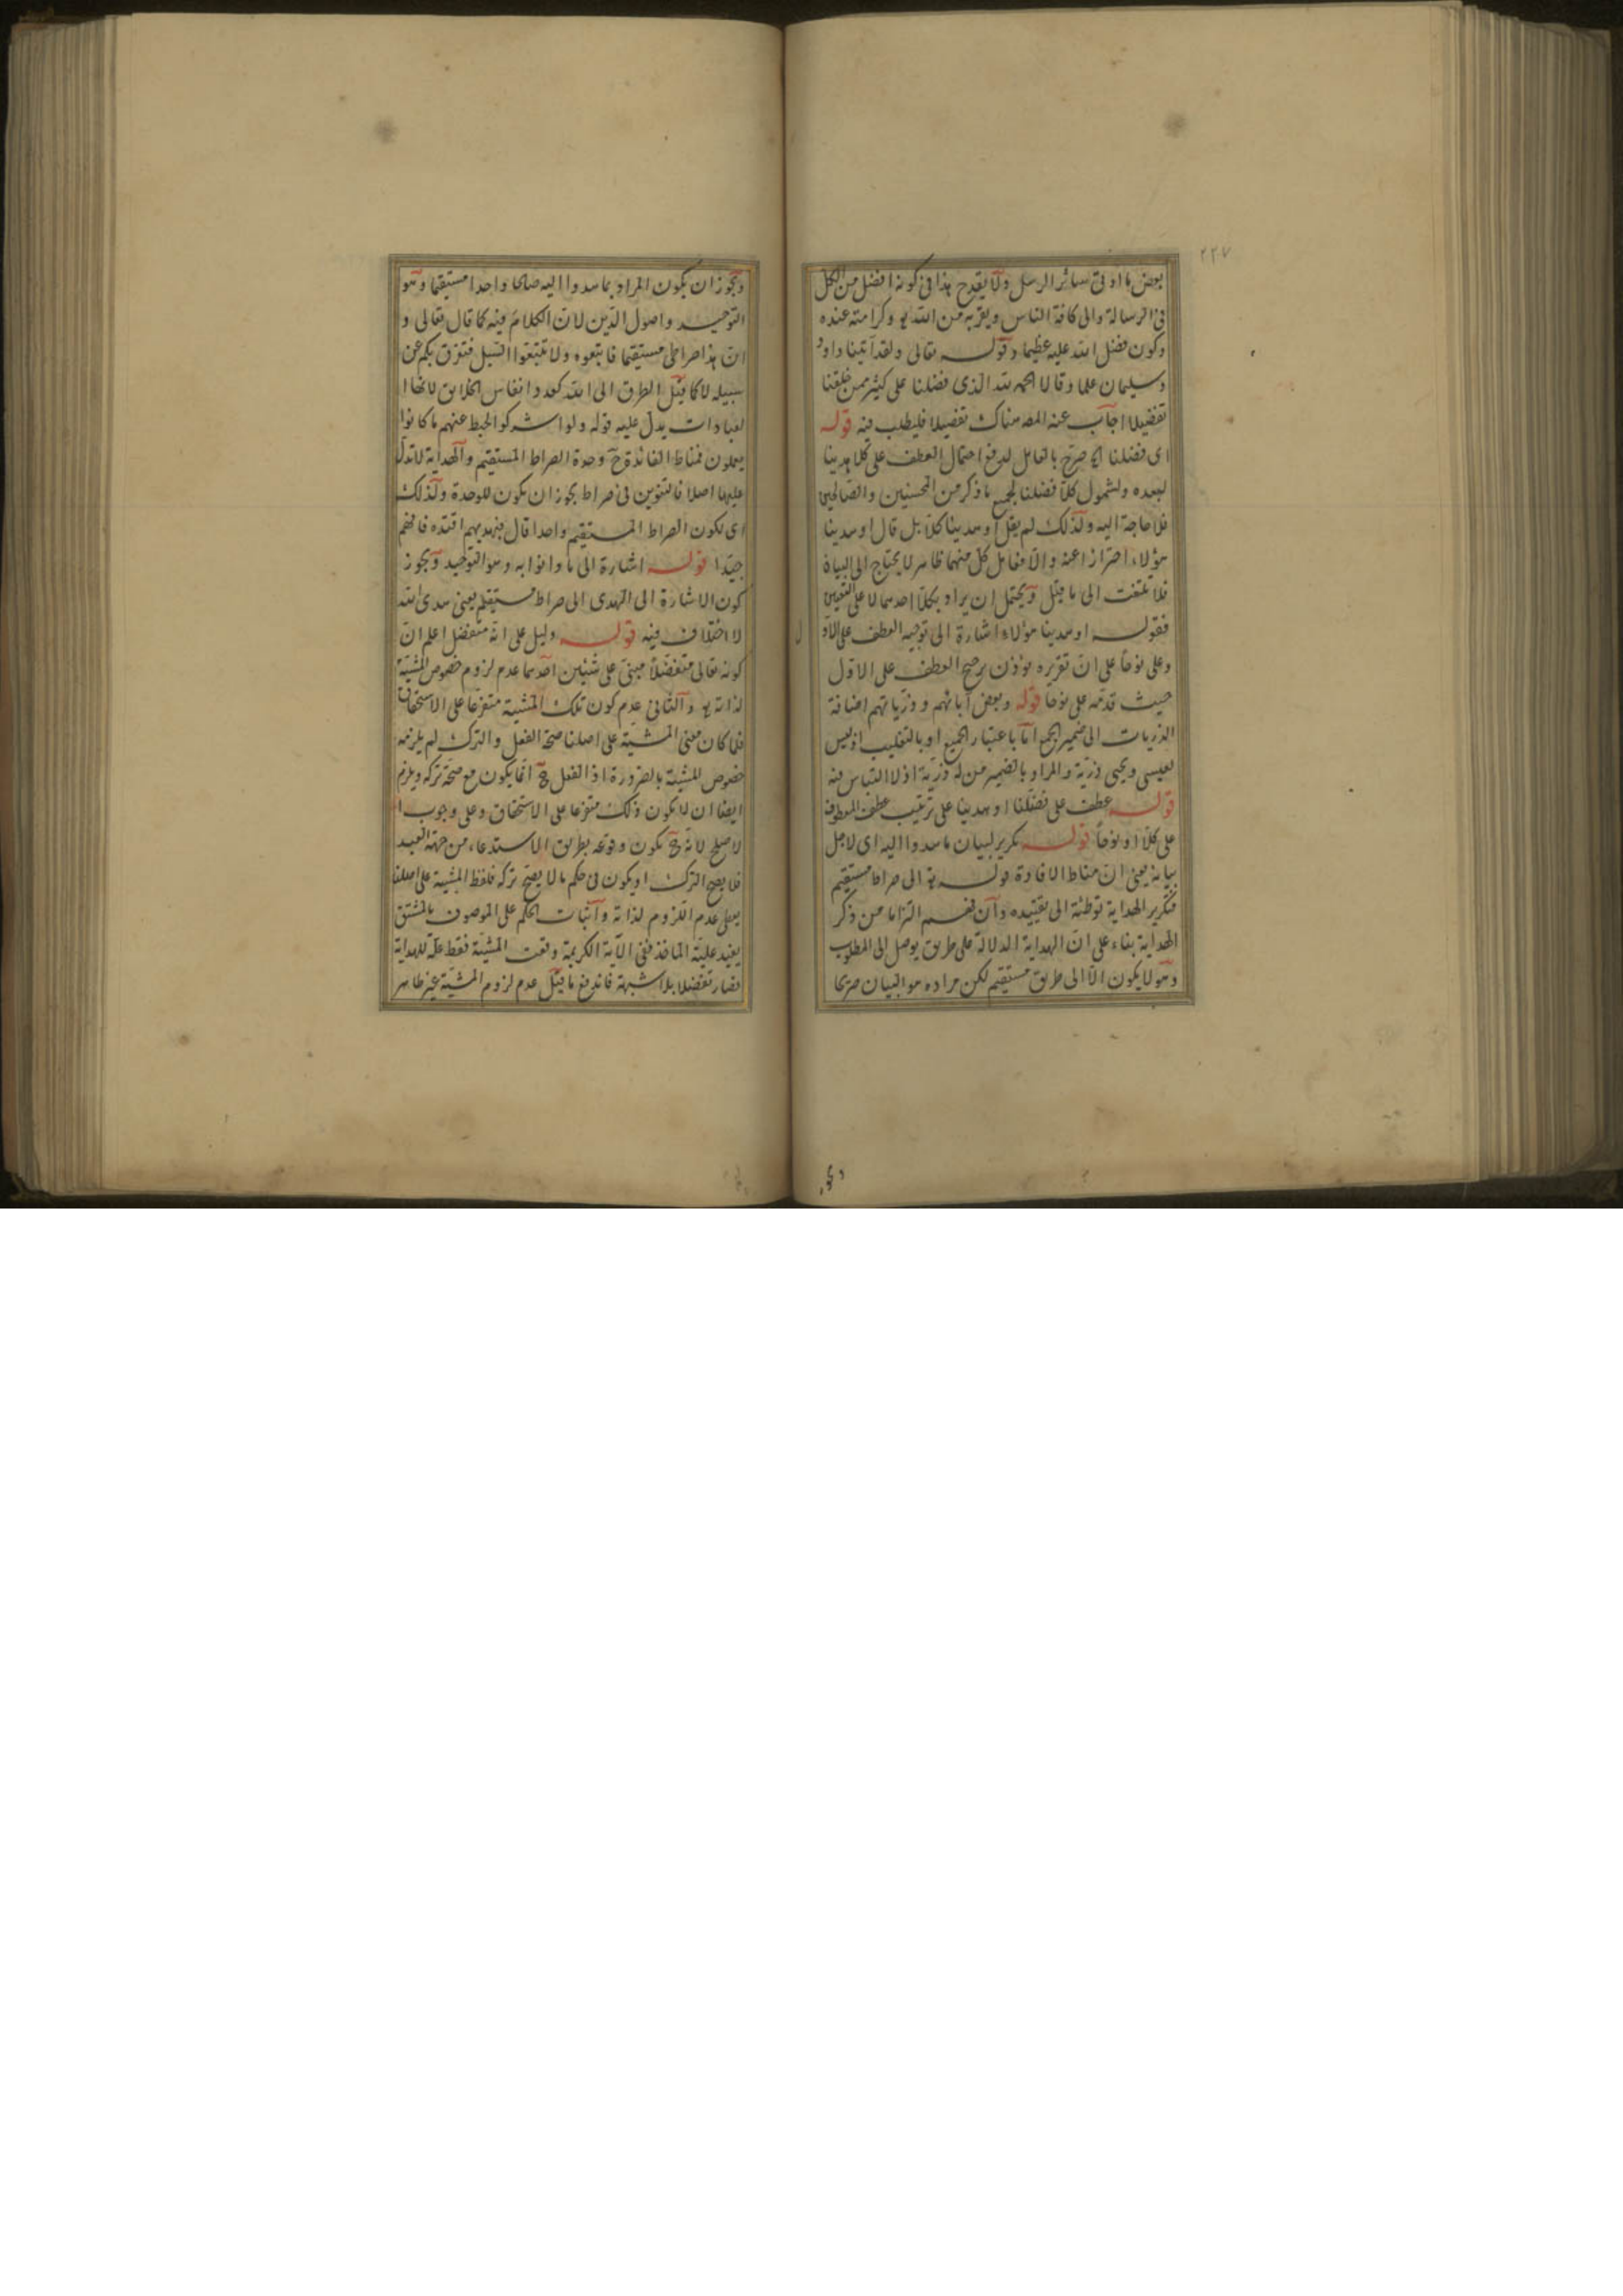 ٢٢٧
بعض ما اوتى سائر الرسل ولا يقدح هذا فى كونه افضل من الكل
فى الرسالة والى كافة الناس وبقربه من الله تع وكرامته عنده
وكون فضل الله عليه عظيما وقوله تعالى ولقد آتينا داود
وسليمان علما وقالا الحمد لله الذى فضلنا على كثير ممن خلقنا
تفضيلا اجاب عنه المص هناك تفصيلا فليطلب فيه قوله
اى فضلنا الخ صرح بالعامل لدفع احتمال العطف على كلا هدينا
لبعده ولشمول كلا فضلنا لجميع ما ذكر من المحسنين والصالحين
فلا حاجة اليه ولذلك لم يقل او هدينا كلا بل قال او هدينا
هؤلاء احترازا عنه والا فعامل كل منهما ظاهر لا يحتاج الى البيان
فلا تلتفت الى ما قيل ويحتمل ان يراد بكلا احدهما لا على التعيين
فقوله او هدينا هؤلاء اشارة الى توجيه العطف على الاو
ل
وعلى نوحا على ان تقريره يؤذن برجح العطف على الاول
حيث قدمه على نوحا قوله وبعض آبائهم وذرياتهم اضافة
الذريات الى ضمير الجمع اما باعتبار الجميع او بالتغليب اذ ليس
لعيسى ويحيى ذرية والمراد بالضمير من له ذرية اذ لا التباس فيه
قوله عطف على فضلنا او هدينا على ترتيب عطف المعطوف
على كلا او نوحا قوله تكرير لبيان ما هدوا اليه اى لاجل
بيانه يعنى ان مناط الافادة قوله تع الى صراط مستقيم
فتكرير الهداية توطئة الى تقييده وان فهم التزاما من ذكر
الهداية بناء على ان الهداية الدلالة على طريق يوصل الى المطلوب
وهو لا يكون الا الى طريق مستقيم لكن مراده هو البيان صريحا
ويجوز ان يكون المراد بما هدوا اليه صالحا واحدا مستقيما وهو
التوحيد واصول الدين لان الكلام فيه كما قال تعالى و
ان هذا صراطى مستقيما فاتبعوه ولا تتبعوا السبل فتفرق بكم عن
سبيله لا كما قيل الطرق الى الله كعدد انفاس الخلائق لانها ا
لعبادات يدل عليه قوله ولو اشركوا لحبط عنهم ما كانوا
يعملون فمناط الفائدة ح وحدة الصراط المستقيم والهداية لا تدل
عليها اصلا فالتنوين فى صراط يجوز ان يكون للوحدة ولذلك
اى لكون الصراط المستقيم واحدا قال فبهديهم اقتده فافهم
جيدا قوله اشارة الى ما دانوا به وهو التوحيد ويجوز
كون الاشارة الى الهدى الى صراط مستقيم يعنى هدى الله
لا اختلاف فيه قوله دليل على انه متفضل اعلم ان
كونه تعالى متفضلا مبنى على شيئين احدهما عدم لزوم خصوص المشية
لذاته تع والثانى عدم كون تلك المشية متفرعا على الاستحقاق
فلما كان معنى المشية على اصلنا صحة الفعل والترك لم يلزمه
خصوص المشية بالضرورة اذ الفعل ح انما يكون مع صحة تركه ويلزم
ايضا ان لا يكون ذلك متفرعا على الاستحقاق وعلى وجوب ا
لاصلح لانه ح يكون وقوعه بطريق الاستدعاء من جهة العبد
فلا يصح الترك او يكون فى حكم ما لا يصح تركه فلفظ المشية على اصلنا
يعطى عدم اللزوم لذاته واثبات الحكم على الموصوف بالمشتق
يفيد علية المأخذ ففى الآية الكريمة وقعت المشية فقط علة للهداية
فصار تفضلا بلا شبهة فاندفع ما قيل عدم لزوم المشية غير ظاهر